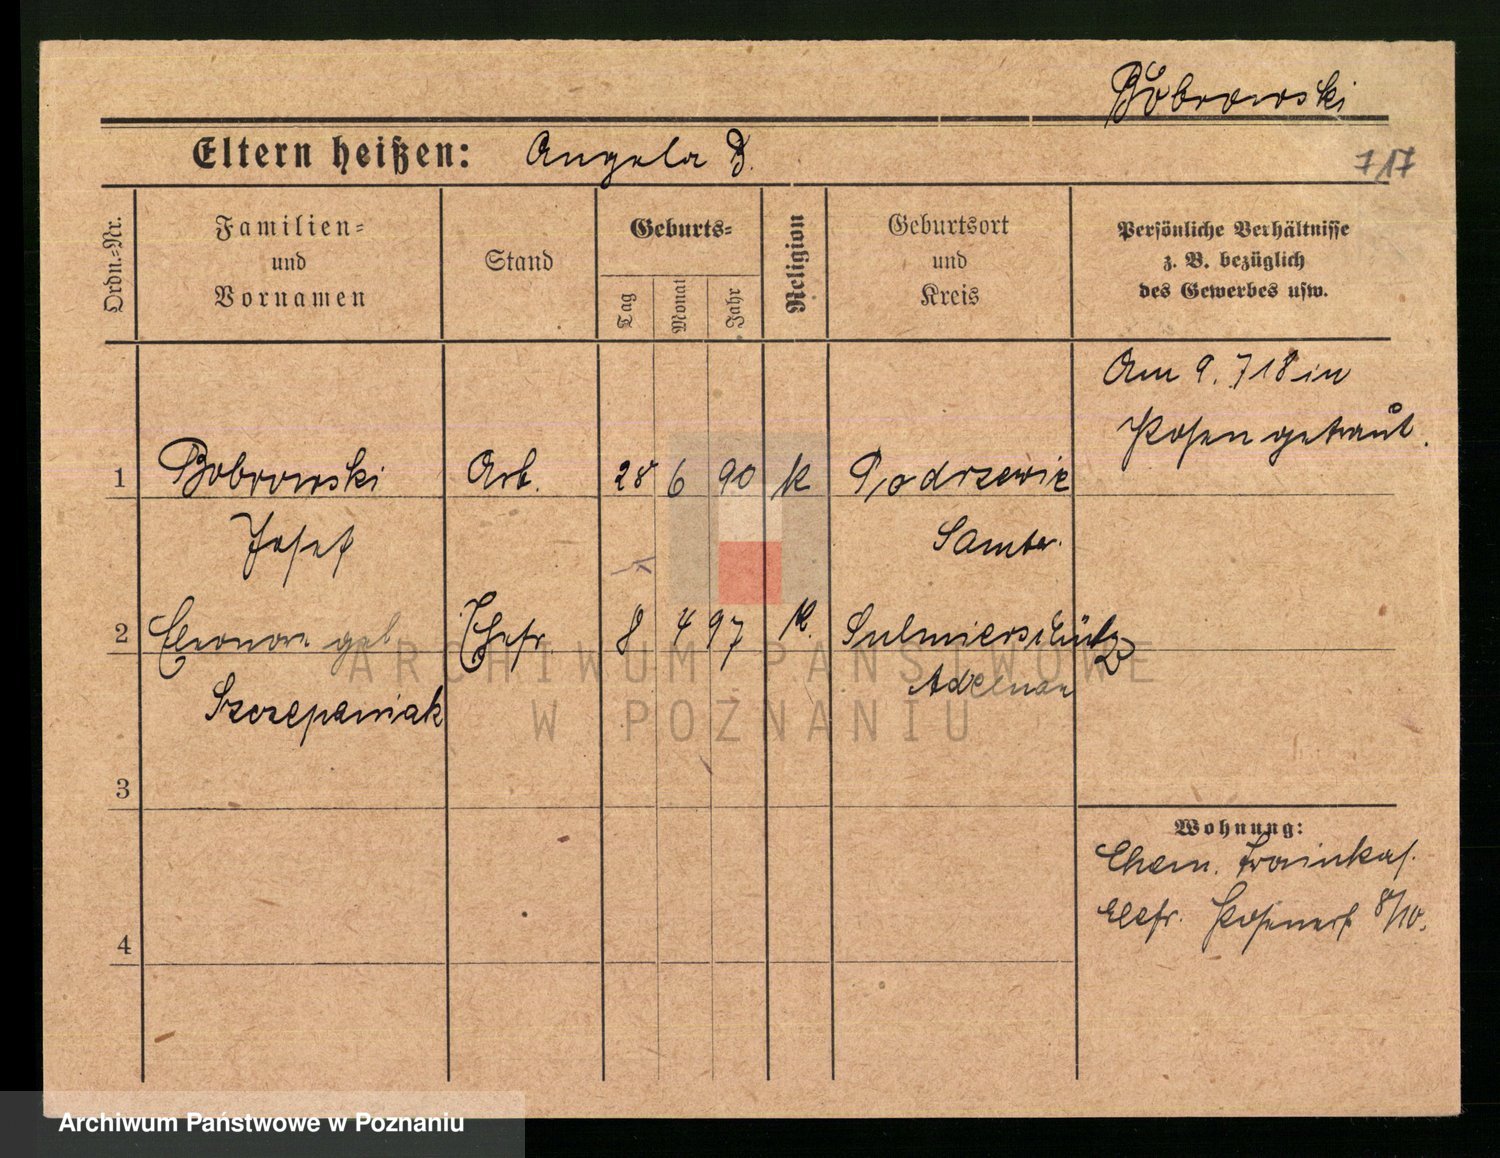 Bobrowski
Eltern heißen: Angela B.
717
Ordn.=Nr.
Familien=
und
Vornamen
Stand
Geburts=
Tag
Monat
Jahr
Religion
Geburtsort
und
Kreis
Persönliche Verhältnisse
z. B. bezüglich
des Gewerbes usw.
Am 9. 7 18 in
Posen getraut.
1 Bobrowski Arb. 28 6 90 K Podrzewie
Josef Samter.
2 Eleonore geb Ehefr. 8 4 97 K. Sulmierschütz
Szczepaniak Adelnau
3
4
Wohnung:
Ehem. Trainkas.
Posenerst 8/10.
ARCHIWUM PAŃSTWOWE
W POZNANIU
Archiwum Państwowe w Poznaniu